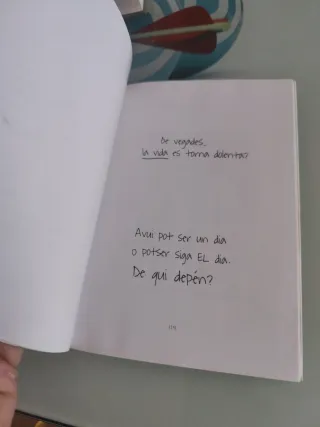 De vegades,
la vida es torna dolenta?
Avui pot ser un dia
o potser sigui EL dia.
De qui depèn?